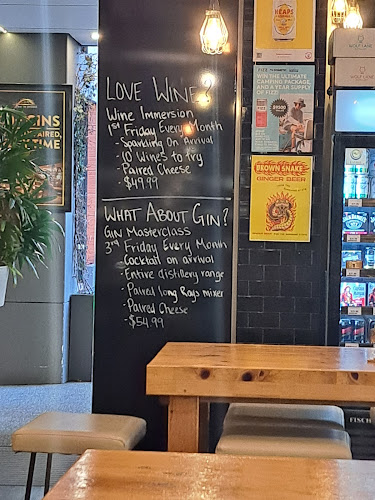 LOVE WINE?
Wine Immersion
1st Friday Every Month
- Sparkling On Arrival
- 10 Wines to try
- Paired Cheese
- $49.99
WHAT ABOUT GIN?
GIN Masterclass
3rd Friday Every Month
- Cocktail on arrival
- Entire distillery range
- Paired long Rays mixer
- Paired Cheese
- $54.99
HEAPS
WIN THE ULTIMATE
CAMPING PACKAGE,
AND A YEAR SUPPLY
OF FIZZ!
BROWN SNAKE
GINGER BEER
WOLF LANE
GINS
TIME
FISCH